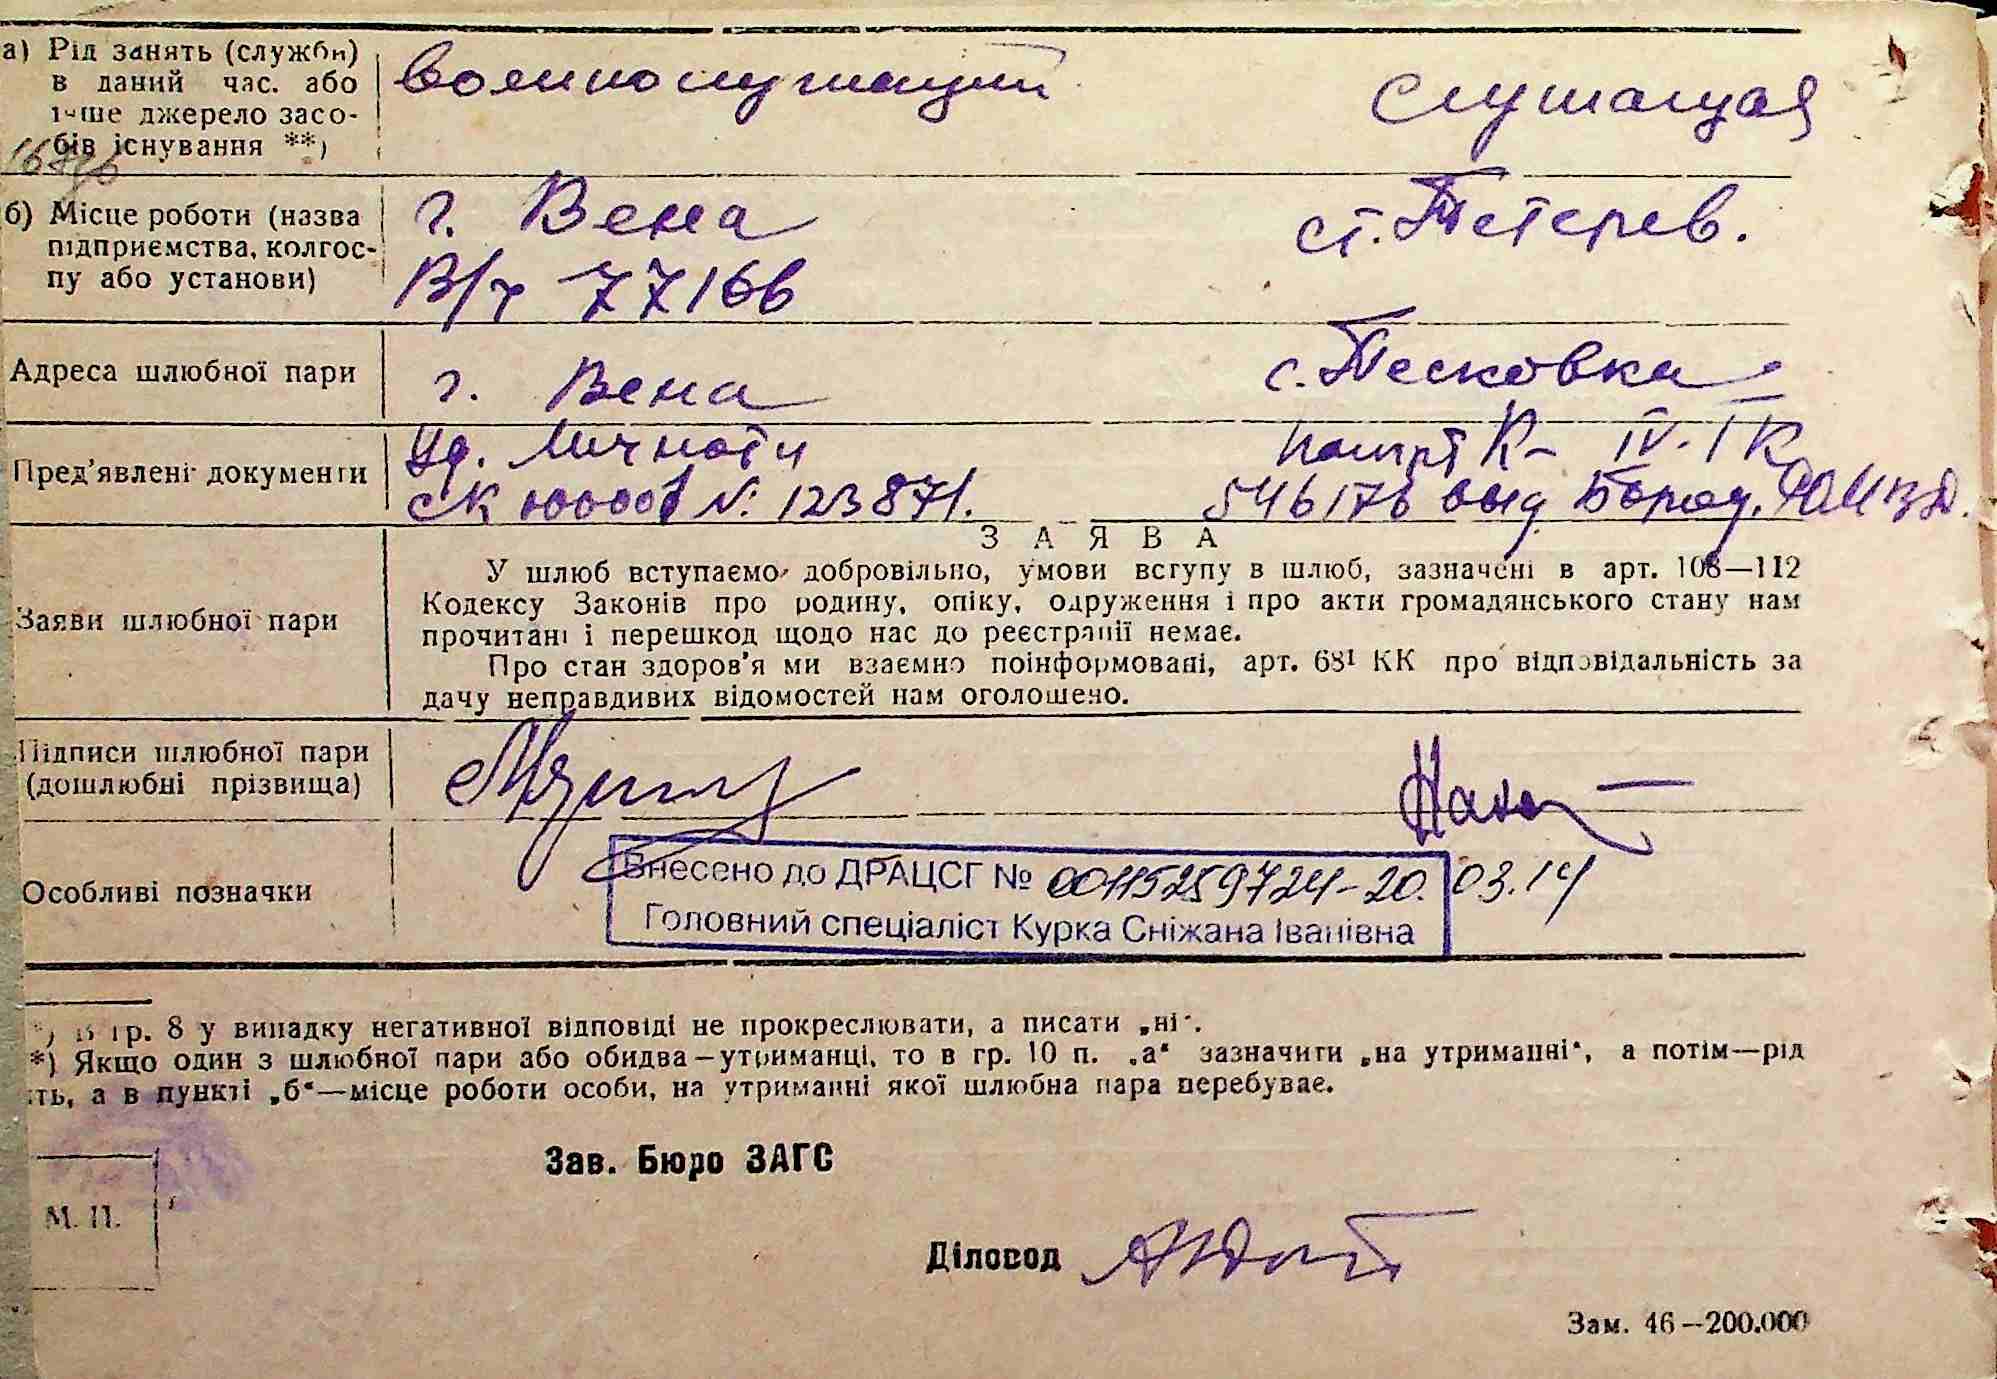 а) Рід занять (служби) в даний час. або інше джерело засобів існування **) военнослужащий служащая
16876
б) Місце роботи (назва підприємства, колгоспу або установи) г. Вена ст. Тетерев.
В/ч 77166
Адреса шлюбної пари г. Вена с. Песковка
Пред'явлені документи Уд. Личности пашпрт К- IV-ІК
СК № 123871. 546176 выд. Бород. РОМВД.
З А Я В А
Заяви шлюбної пари
У шлюб вступаємо добровільно, умови вступу в шлюб, зазначені в арт. 108—112
Кодексу Законів про родину, опіку, одруження і про акти громадянського стану нам
прочитані і перешкод щодо нас до реєстрації немає.
Про стан здоров'я ми взаємно поінформовані, арт. 68¹ КК про відповідальність за
дачу неправдивих відомостей нам оголошено.
Підписи шлюбної пари
(дошлюбні прізвища)
Особливі позначки
Внесено до ДРАЦСГ № 00115259724-20.03.14
Головний спеціаліст Курка Сніжана Іванівна
*) В гр. 8 у випадку негативної відповіді не прокреслювати, а писати „ні".
*) Якщо один з шлюбної пари або обидва—утриманці, то в гр. 10 п. „а" зазначити „на утриманні", а потім—рід
ть, а в пункті „б"—місце роботи особи, на утриманні якої шлюбна пара перебуває.
Зав. Бюро ЗАГС
М. П.
Діловод
Зам. 46—200.000